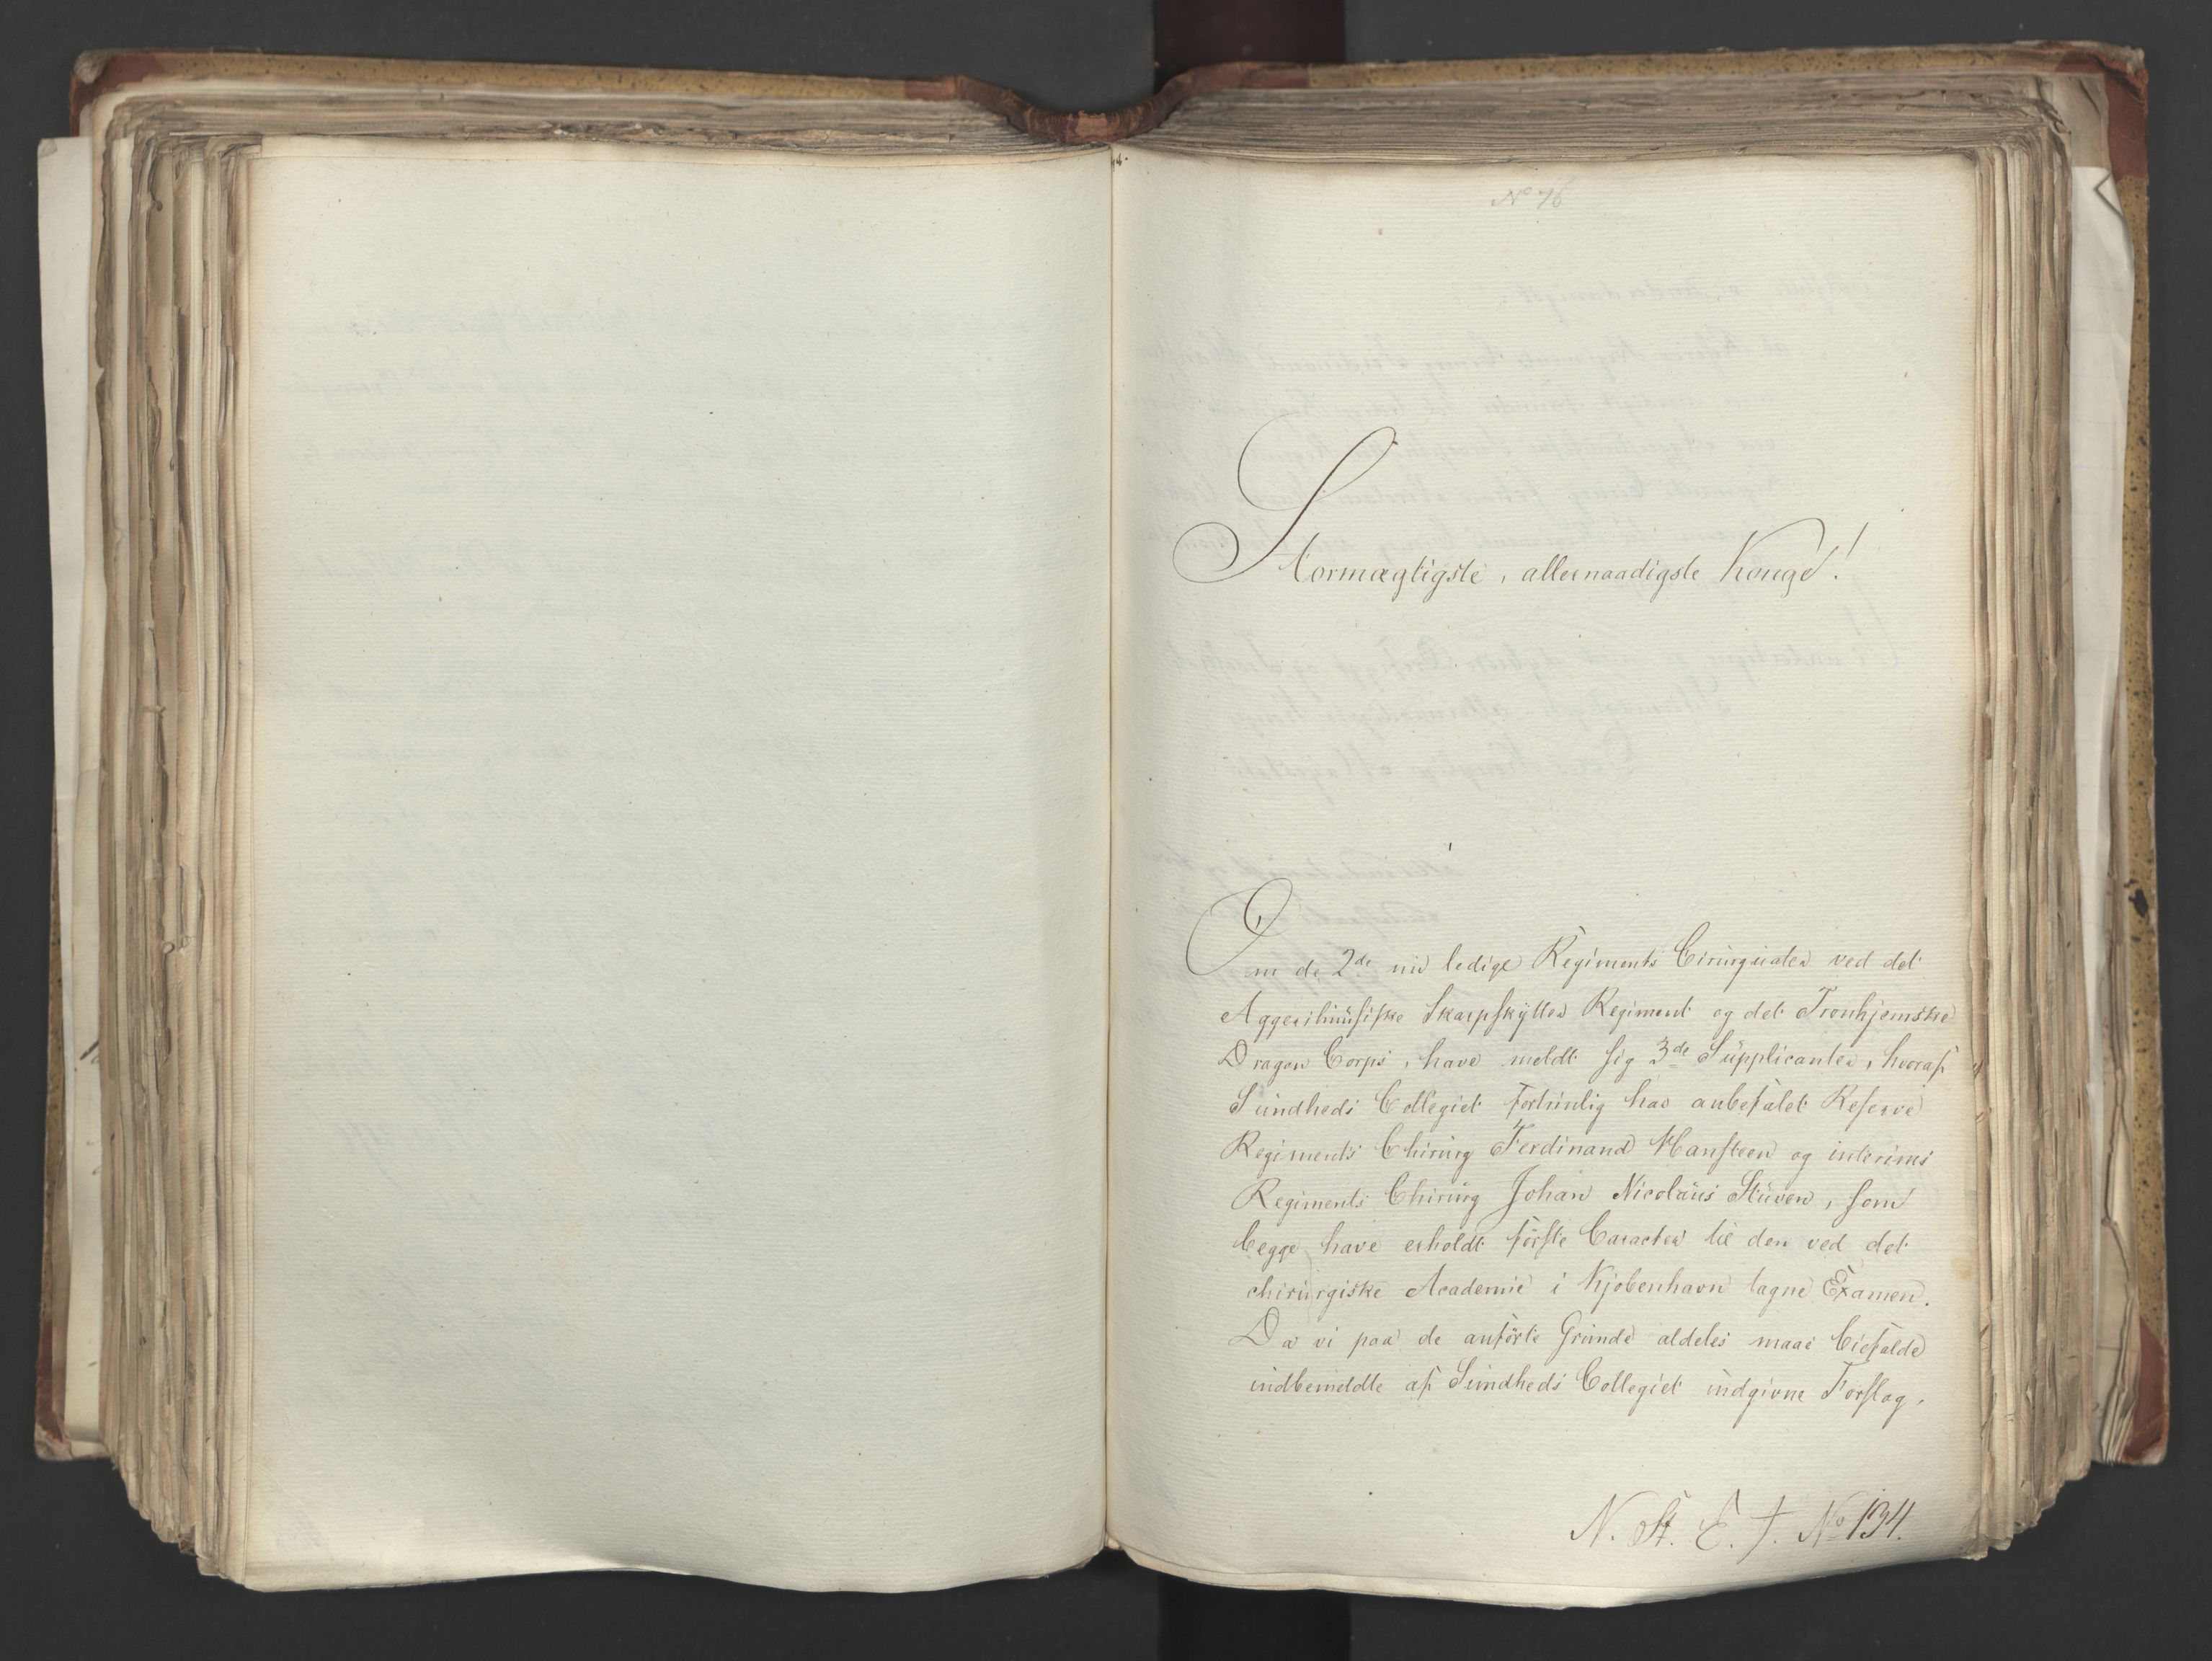 No 76
Stormægtigste, allernaadigste Konge!
Om de 2de nu ledige Regiments Cirurgicater ved det
Aggershuusiske Skarpskytter Regiment og det Tronhjemske
Dragon Corps, have meldt sig 3de Supplicanter, hvoraf
Sundheds Collegiet fortrinlig har anbefalet Reserve
Regiments Chirurg Ferdinand Hansteen og interims
Regiments Chirurg Johan Nicolaus Stüwen, som
begge have erholdt første Caracter til den ved det
chirurgiske Academie i Kjøbenhavn tagne Examen.
Da vi paa de anførte Grunde aldeles maae biefalde
indbemeldte af Sundheds Collegiet indgivne Forslag,
N. St. E. f. No 134.